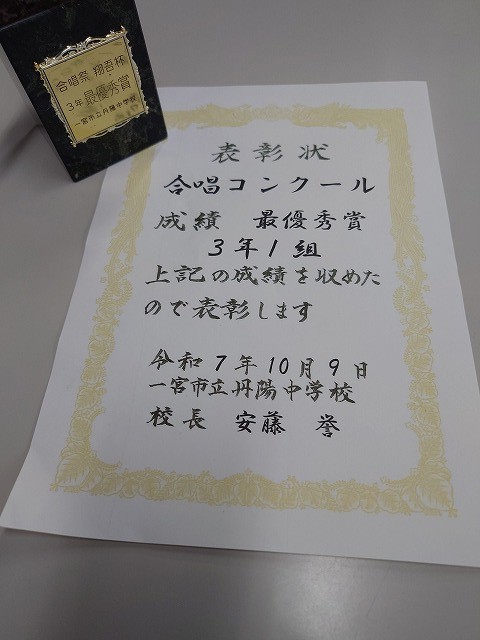 合唱祭 翔吾杯
3年 最優秀賞
一宮市立丹陽中学校
表彰状
合唱コンクール
成績 最優秀賞
3年1組
上記の成績を収めた
ので表彰します
令和7年10月9日
一宮市立丹陽中学校
校長 安藤 誉